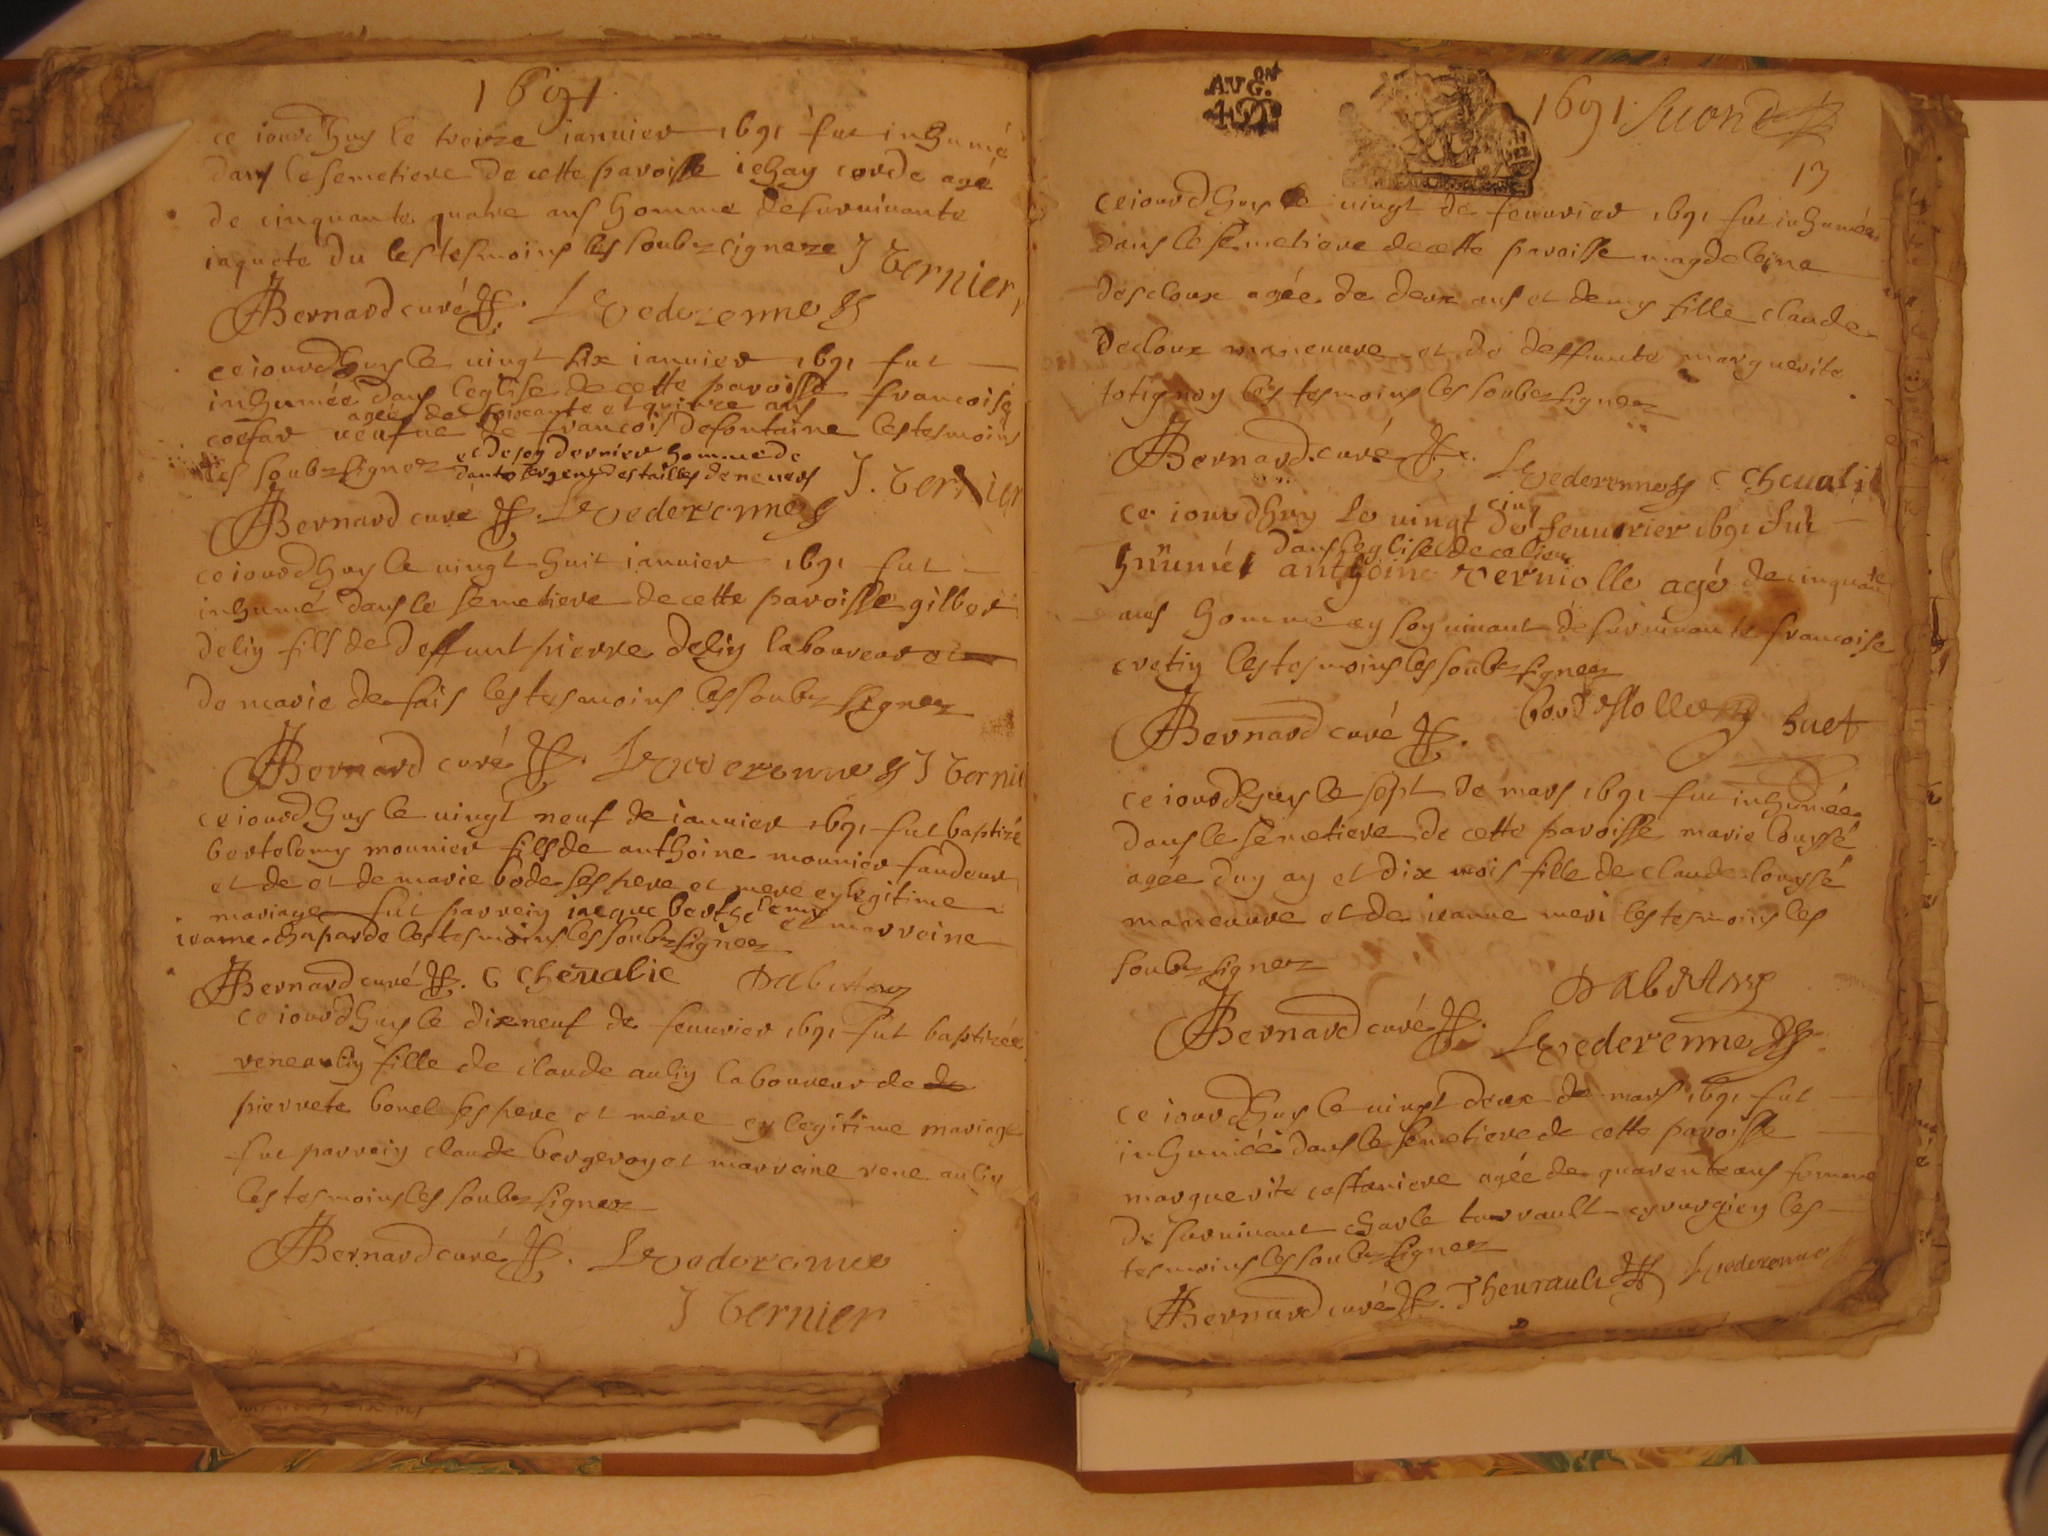 1691
ce iourdhuy le treize ianuier 1691 fut inhumé
dans le semetiere de cette paroisse iehan corde agé
de cinquante quatre ans homme desuruiuante
iaquete du les tesmoins les soubz cigneze J Vernier
Bernard curé Lvederenne
ce iourdhuy le uingt six ianuier 1691 fut
inhumée dans leglise de cette paroisse francoise
agée de soixante et quinze ans
ueufue de francois defontaine les tesmoins
les soubz signez et de son dernier homme de
sergens des tailles de neuers J. Vernier
Bernard curé Lvederenne
ce iourdhuy le uingt huit ianuier 1691 fut
inhumé dans le semetiere de cette paroisse gilber
delin fils de deffunt pierre delin laboureur et
de marie defais les tesmoins les soubz signez
Bernard curé Lvederenne J Vernie
ce iourdhuy le uingt neuf de ianuier 1691 fut baptizé
bertelemy mounier fills de anthoine mounier fandeur
et de et de marie bode ses pere et mere en legitime
mariage fut parrein iacque berthelemy et marreine
ieanne chaparde les tesmoins les soubz signez
Bernard curé C Cheualie
ce iourdhuy le dixneuf de feuurier 1691 fut baptizée
rene aulin fille de claude aulin laboureur de de
pierrete bonel ses pere et mere en legitime mariage
fut parrein claude bergeron et marreine rene aulin
les tesmoins les soubz signez
Bernard curé Lvederenne
J Vernier
AVG.ON
1691
13
ce iourdhuy le uingt de feuurier 1691 fut inhumée
dans le semetiere de cette paroisse magdeleine
descloux agée de deux ans et demy fille claude
decloux maneuure et de deffunte marguerite
totignon les tesmoins les soubz signez
Bernard curé Lvederenne C Cheualie
ce iourdhuy le uingt cinq feuurier 1691 fut
dans leglise de ce lieu
hinumé anthoine Verniolle agé de cinquante
ans homme en son uiuant de suruiuante francoise
cretin les tesmoins les soubz signez
Bernard curé huet
ce iourdhuy le sept de mars 1691 fut inhumée
dans le semetiere de cette paroisse marie loussé
agée dun an et dix mois fille de claude loussé
maneuure et de ieanne meri les tesmoins les
soubz signez
Bernard curé Lvederenne
ce iourdhuy le uingt deux de mars 1691 fut
inhumée dans le semetiere de cette paroisse
marguerite castaniere agée de quarente ans femme
de suruiuant charle turrault cyrurgien les
tesmoins les soubz signez
Bernard curé Theurault Lvederenne